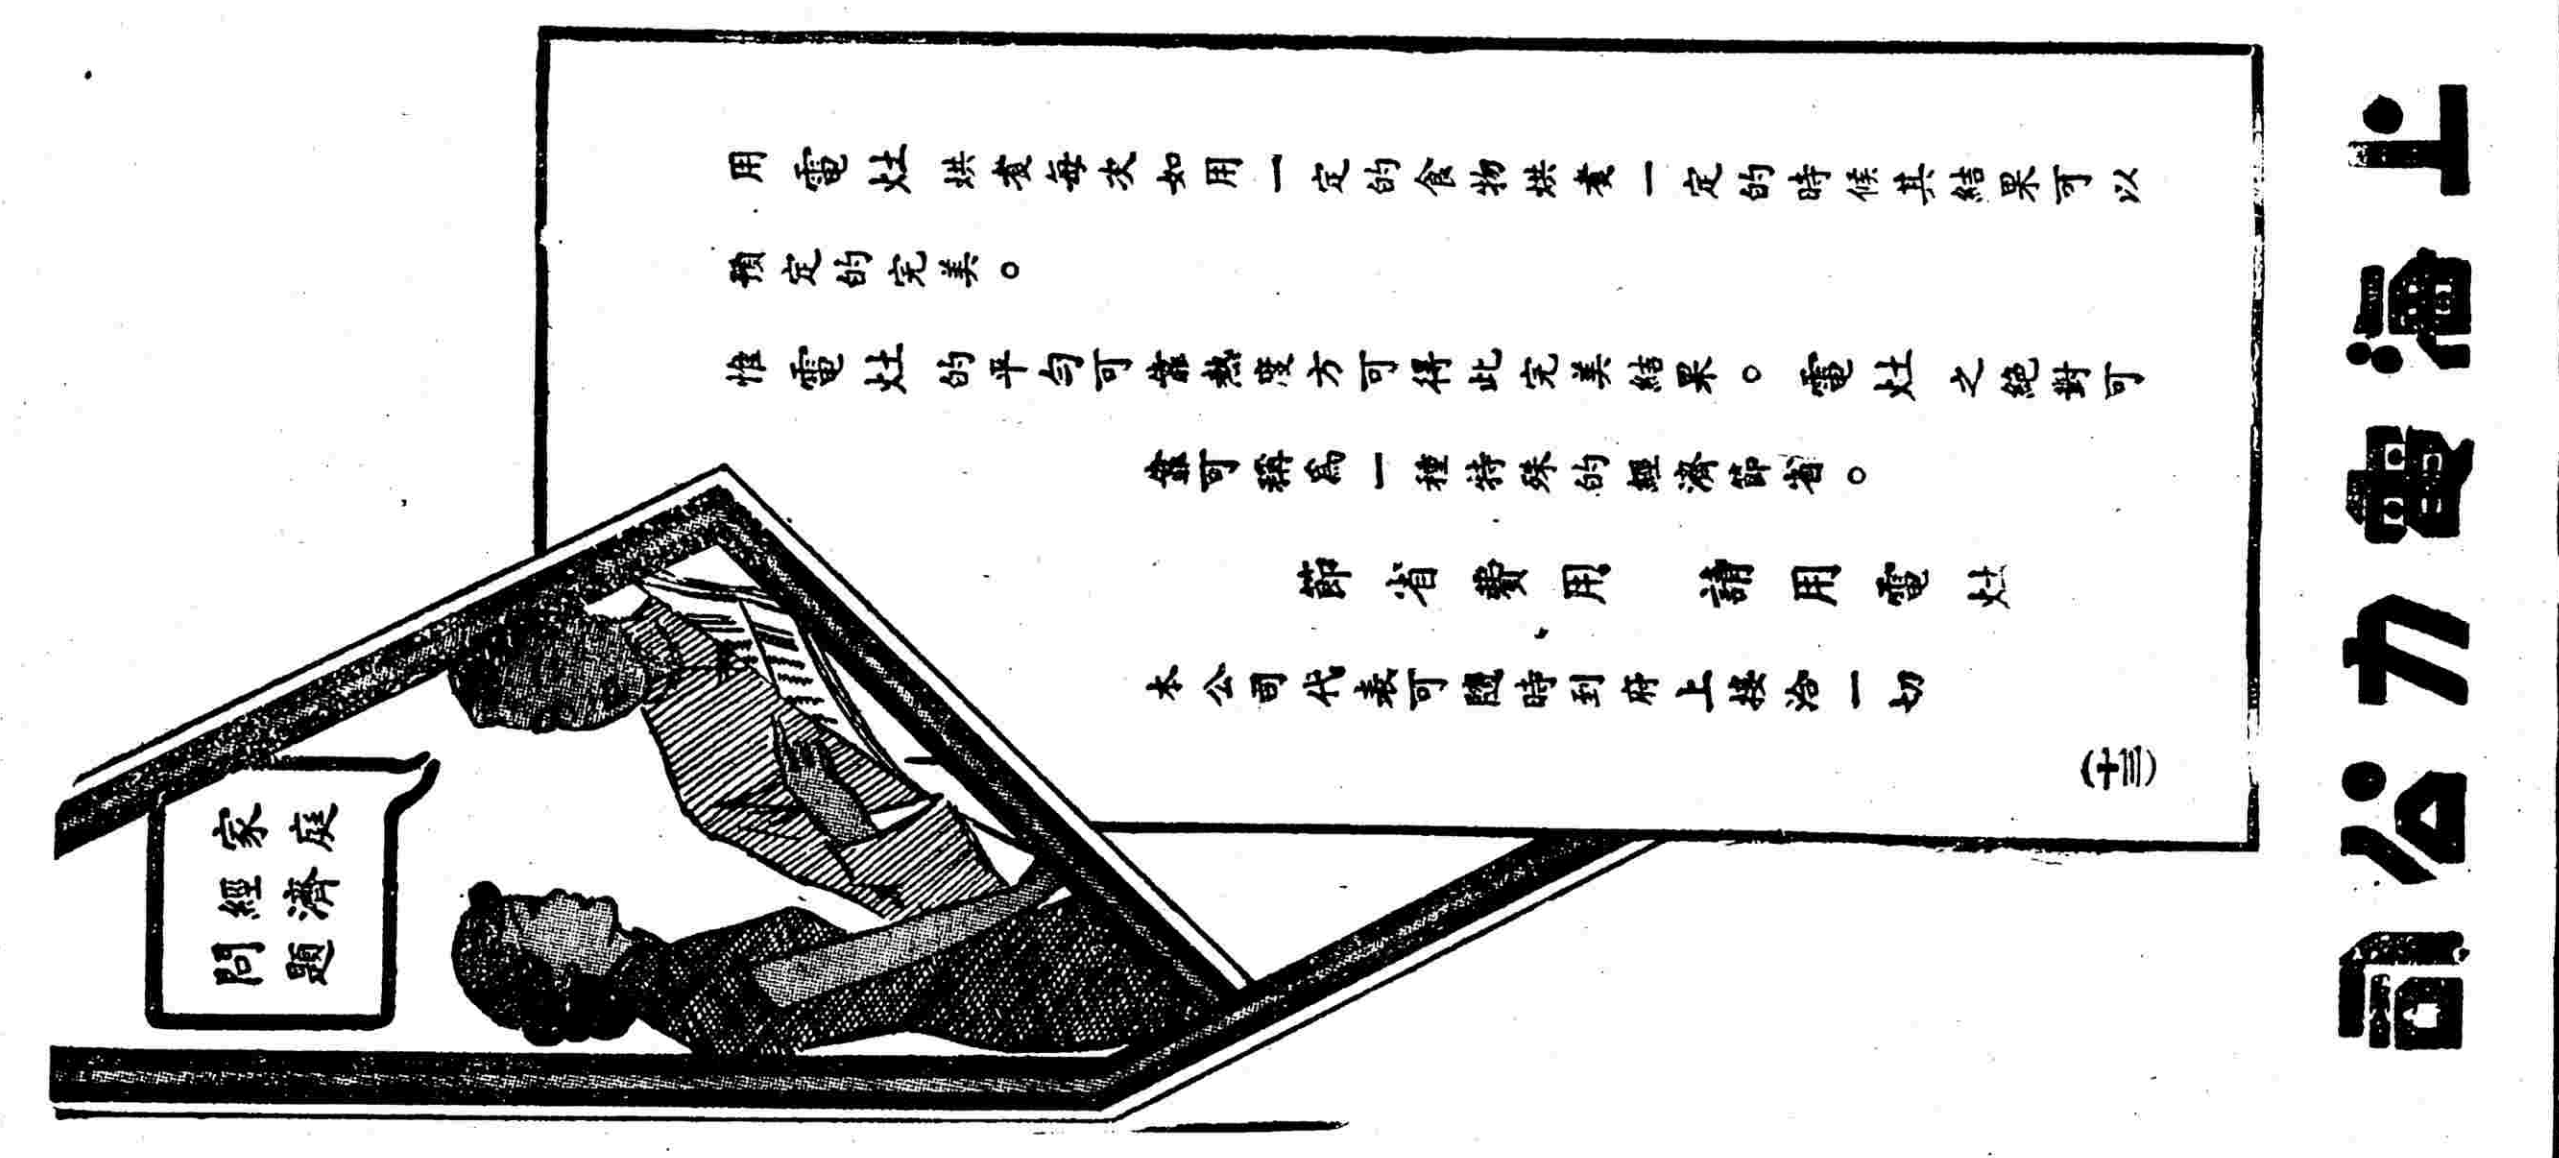 家庭
經濟
問題
用電灶烘煮每次如用一定的食物烘煮一定的時候其結果可以
預定的完美。
惟電灶的平勻可靠熱度方可得此完美結果。電灶之絕對可
靠可稱爲一種特殊的經濟節省。
節省費用 請用電灶
本公司代表可隨時到府上接洽一切
(十三)
上海電力公司